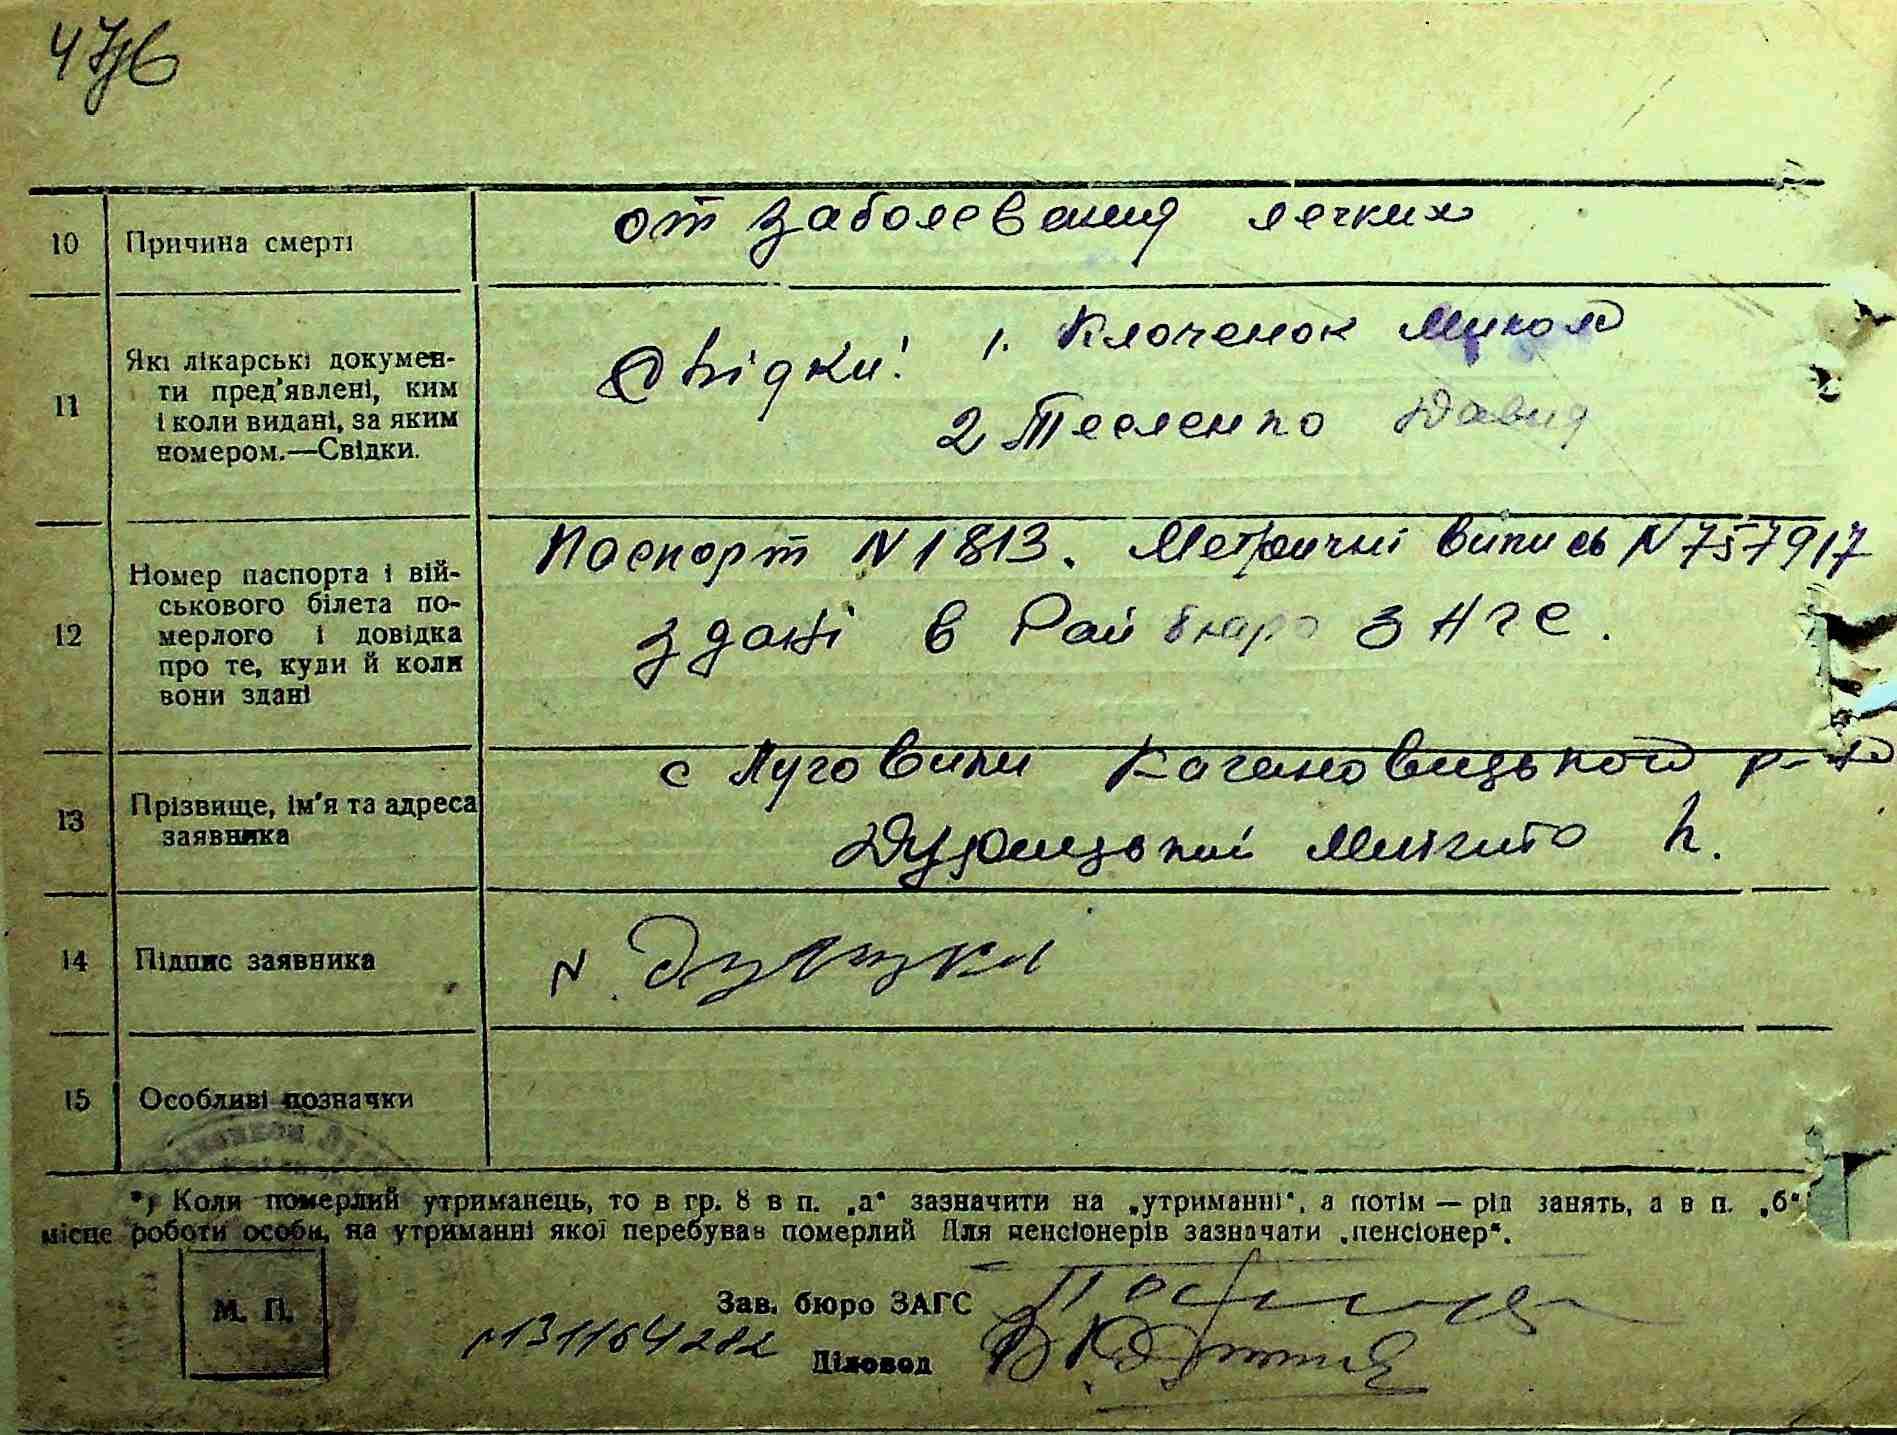 10 Причина смерті
от заболевания легких
11 Які лікарські докумен-
ти пред'явлені, ким
і коли видані, за яким
номером.—Свідки.
Свідки! 1. Клоченок Микола
2 Тесленко Давид
12 Номер паспорта і вій-
ськового білета по-
мерлого і довідка
про те, куди й коли
вони здані
Паспорт N 1813. Метричні випись N 757917
здані в Рай бюро ЗАГС.
13 Прізвище, ім'я та адреса
заявника
с Луговики Кагановицького р-на
Микита
14 Підпис заявника
15 Особливі позначки
*) Коли померлий утриманець, то в гр. 8 в п. „а" зазначити на „утриманні", а потім — рід занять, а в п. „б"
місце роботи особи, на утриманні якої перебував померлий Для пенсіонерів зазначати „пенсіонер".
М. П.
Зав. бюро ЗАГС
Діловод